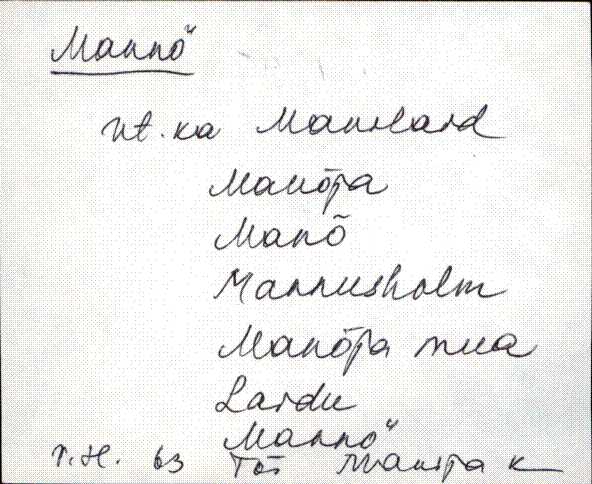 Mannö
vt. ka Manilaid
Manõja
Manõ
Mannusholm
Manõja maa
Laidu
Mannö
T.H. 63 Tõs Manija k